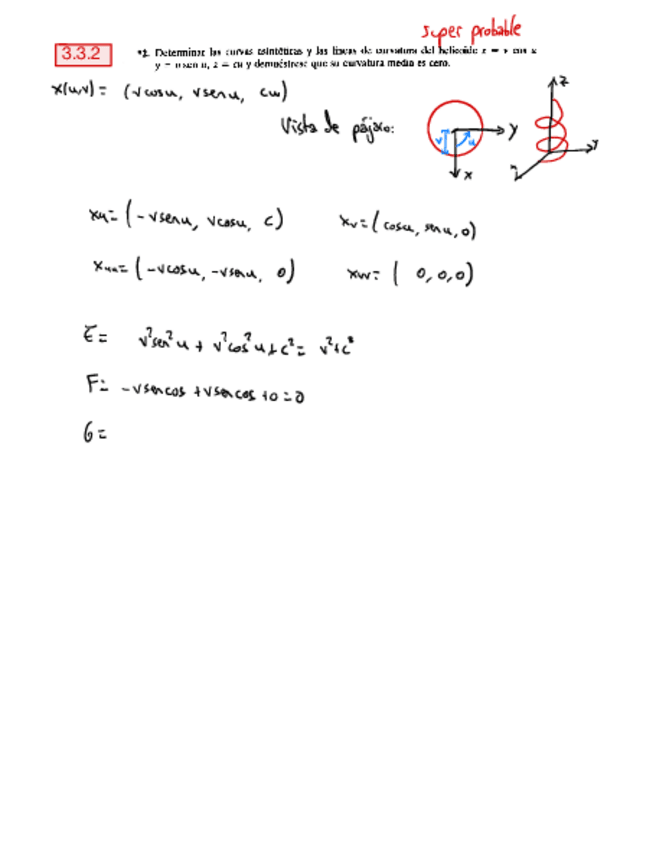 super probable
3.3.2
*2. Determinar las curvas asintóticas y las líneas de curvatura del helicoide x = v cos u
y = v sen u, z = cu y demuéstrese que su curvatura media es cero.
x(u,v) = (vcosu, vsenu, cu)
Vista de pájaro:
v u y x
z y
xu= (-vsenu, vcosu, c) xv=(cosu, senu, 0)
xuu= (-vcosu, -vsenu, 0) xvv= ( 0,0,0)
E= v²sen²u + v²cos²u+c²= v²+c²
F= -vsencos +vsencos +0=0
G=